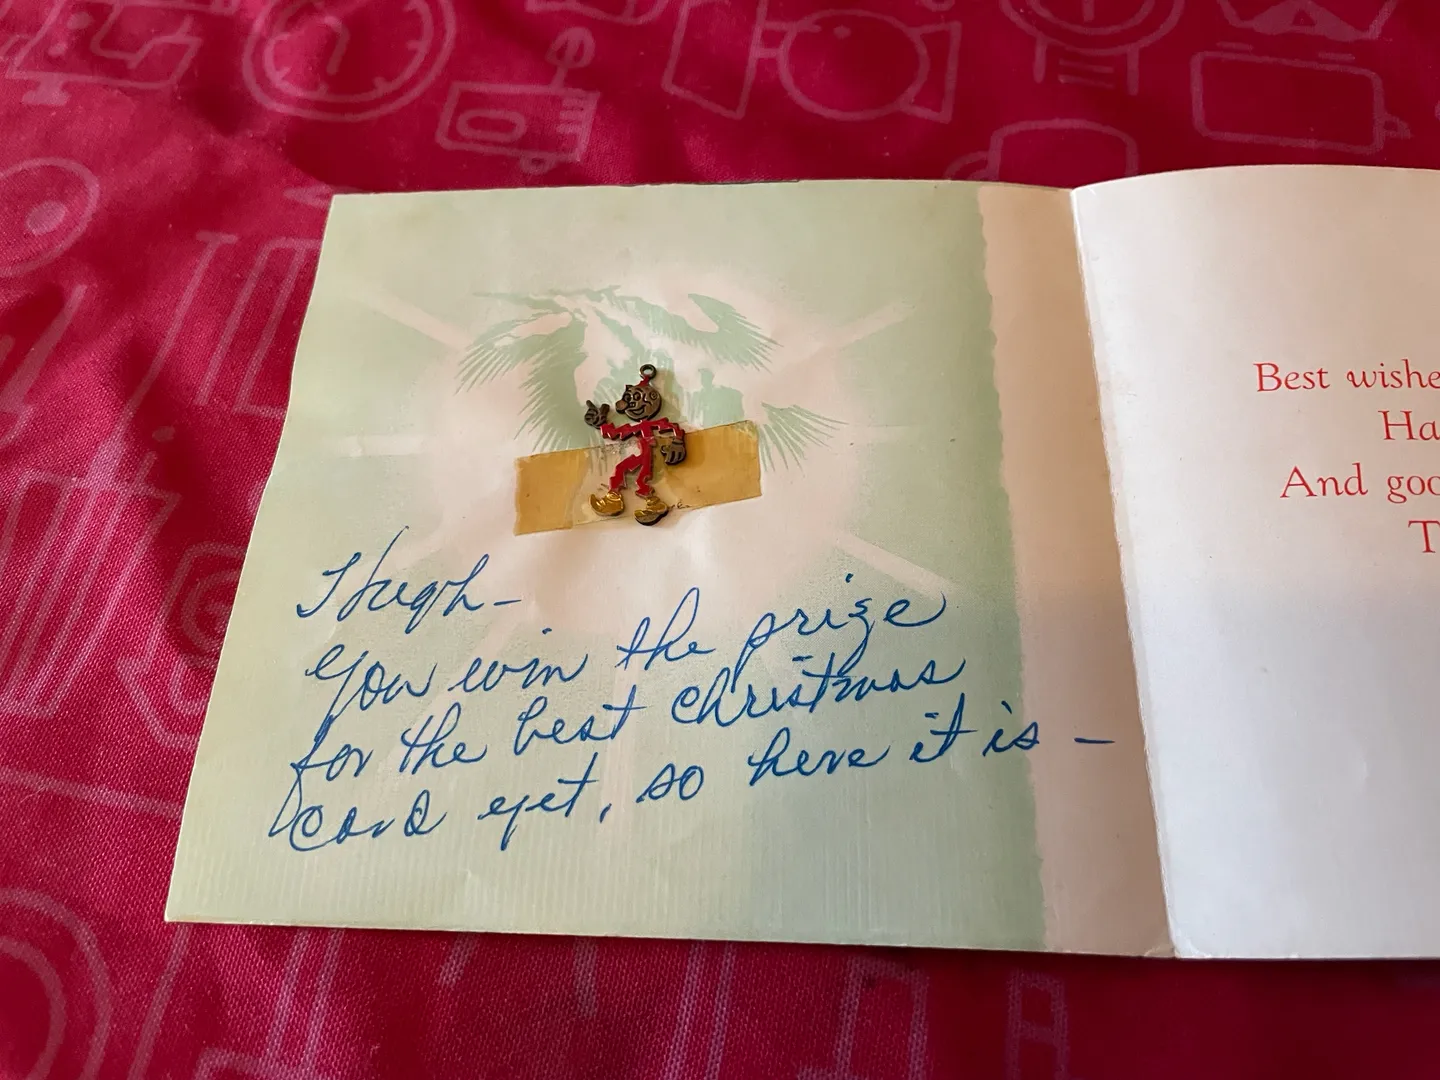 Hugh-
You win the prize
for the best Christmas
card yet, so here it is -
Best wishe
Ha
And goo
T